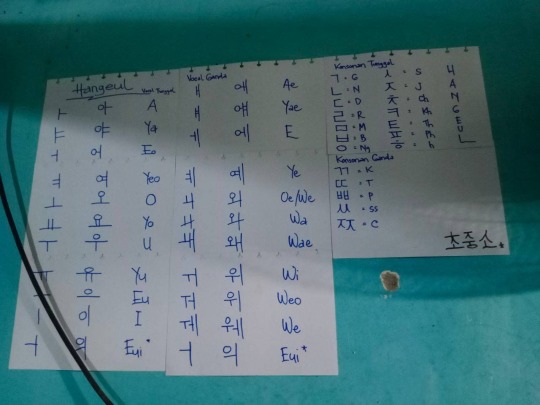 Hangeul Vocal Tunggal
ㅏ 아 A
ㅑ 야 Ya
ㅓ 어 Eo
ㅕ 여 Yeo
ㅗ 오 O
ㅛ 요 Yo
ㅜ 우 U
ㅠ 유 Yu
ㅡ 으 Eu
ㅣ 이 I
의 Eui*
Vocal Ganda
ㅐ 애 Ae
ㅒ 얘 Yae
ㅔ 에 E
ㅖ 예 Ye
ㅚ 외 Oe/We
ㅘ 와 Wa
ㅙ 왜 Wae
ㅟ 위 Wi
ㅝ 워 Weo
ㅞ 웨 We
의 Eui*
Konsonan Tunggal
ㄱ = G
ㄴ = N
ㄷ = D
ㄹ = R
ㅁ = M
ㅂ = B
ㅇ = Ng
ㅅ = S
ㅈ = J
ㅊ = Ch
ㅋ = Kh
ㅌ = Th
ㅍ = Ph
ㅎ = h
H
A
N
G
E
U
L
Konsonan Ganda
ㄲ = K
ㄸ = T
ㅃ = P
ㅆ = SS
ㅉ = C
초중소.